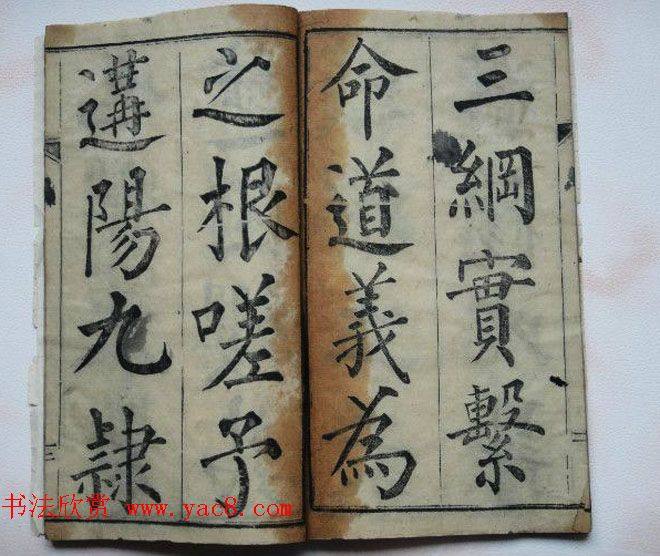 三綱實繫
命道義為
之根嗟予
遘陽九隷
书法欣赏 www.yac8.com